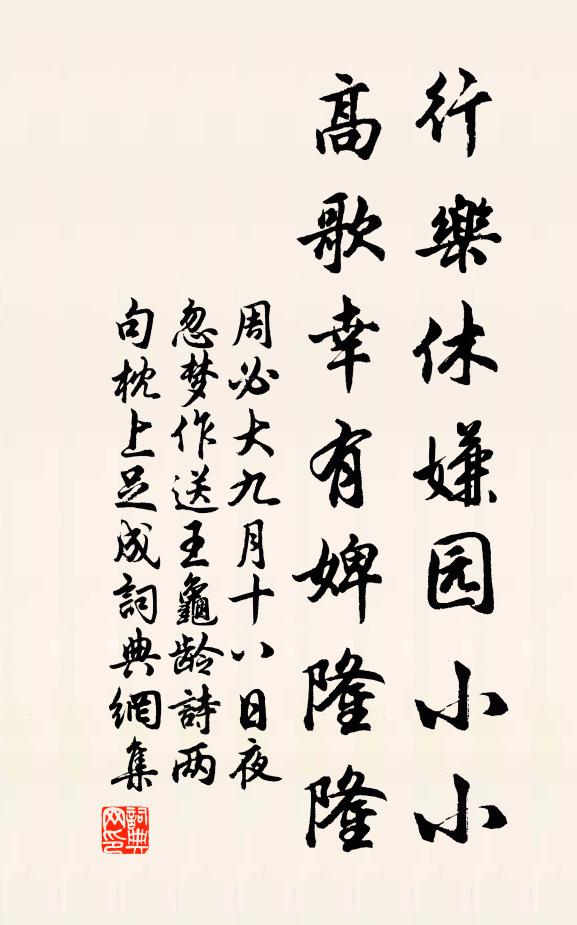 行樂休嫌园小小
高歌幸有婢隆隆
周必大九月十八日夜
忽梦作送王龜龄詩两
句枕上足成詞典網集
詞典网印